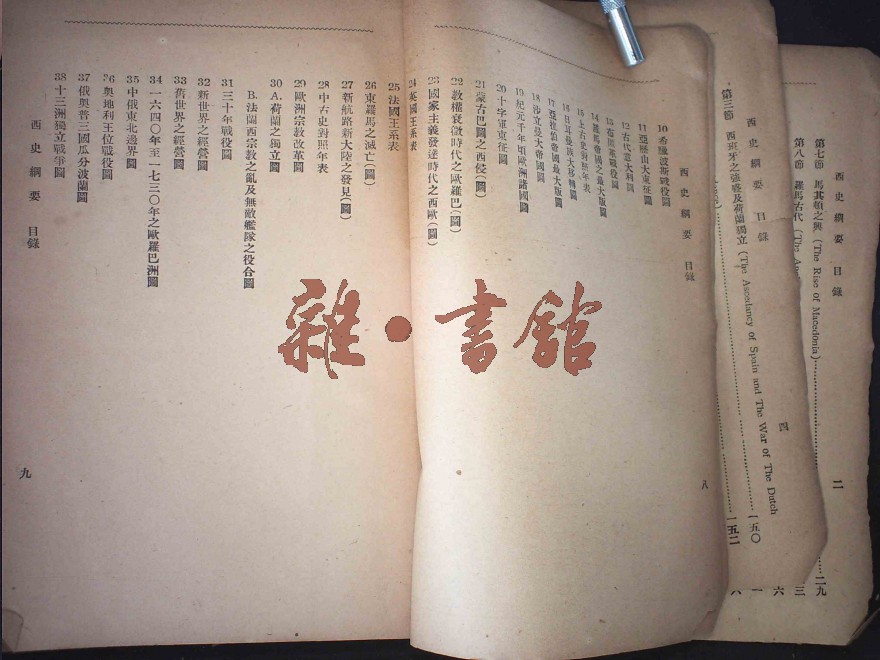 西史綱要 目錄
二
第七節 馬其頓之興 (The Rise of Macedonia)
二九
第八節 羅馬古代
三
西史綱要 目錄
四
第三節 西班牙之強盛及荷蘭獨立 (The Ascedancy of Spain and The War of The Dutch
一五〇
一五二
西史綱要 目錄
八
10 希臘波斯戰役圖
11 亞歷山大東征圖
12 古代意大利圖
13 布匿革戰役圖
14 羅馬帝國之最大版圖
15 上古史對照年表
16 日耳曼民族大移轉圖
17 亞拉伯帝國最大版圖
18 沙立曼大帝國圖
19 紀元千年頃歐洲諸國圖
20 十字軍東征圖
21 蒙古巴圖之西侵(圖)
22 教權衰微時代之歐羅巴(圖)
23 國家主義發達時代之西歐(圖)
24 英國王系表
25 法國王系表
26 東羅馬之滅亡(圖)
27 新航路新大陸之發見(圖)
28 中古史對照年表
29 歐洲宗教改革圖
30 A. 荷蘭之獨立圖
B. 法蘭西宗教之亂及無敵艦隊之役合圖
31 三十年戰役圖
32 新世界之經營圖
33 舊世界之經營圖
34 一六四〇年至一七三〇年之歐羅巴洲圖
35 中俄東北邊界圖
36 奧地利王位戰役圖
37 俄奧普三國瓜分波蘭圖
38 十三洲獨立戰爭圖
西史綱要 目錄
九
雜·書館